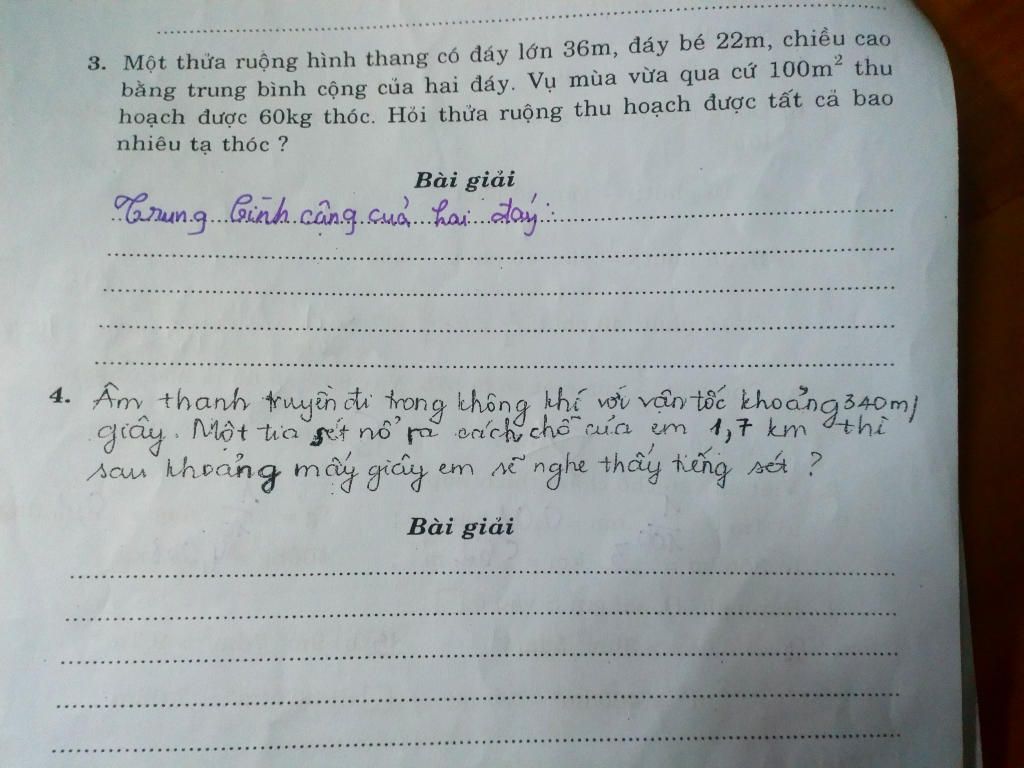 3. Một thửa ruộng hình thang có đáy lớn 36m, đáy bé 22m, chiều cao
bằng trung bình cộng của hai đáy. Vụ mùa vừa qua cứ 100m² thu
hoạch được 60kg thóc. Hỏi thửa ruộng thu hoạch được tất cả bao
nhiêu tạ thóc ?
Bài giải
Trung bình cộng cuả hai đáy :
4. Âm thanh truyền đi trong không khí với vận tốc khoảng 340m/
giây. Một tia sét nổ ra cách chỗ của em 1,7 km thì
sau khoảng mấy giây em sẽ nghe thấy tiếng sét ?
Bài giải